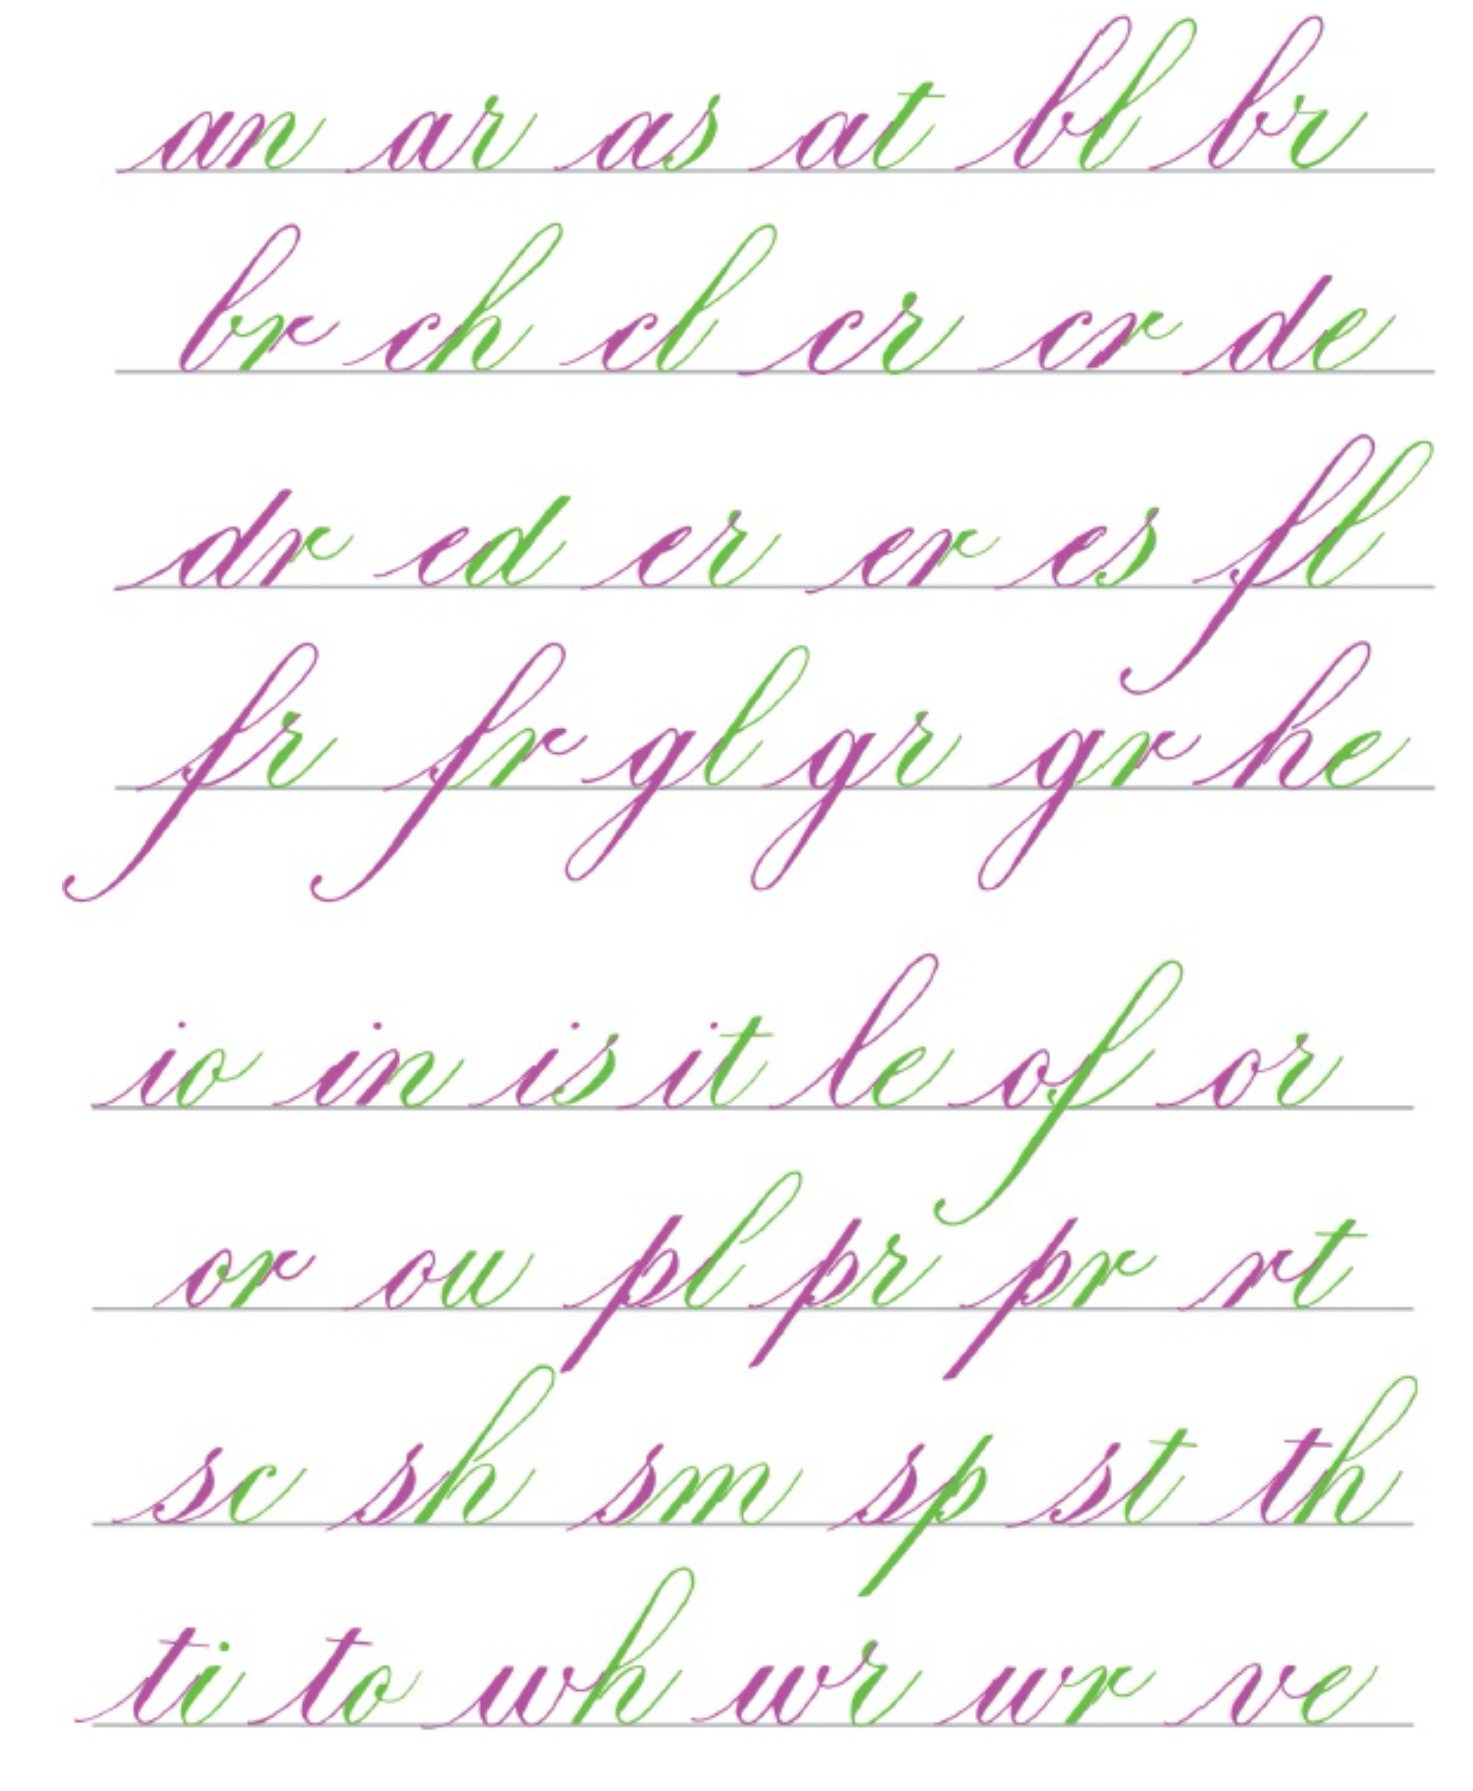 an ar as at bl br
br ch cl cr cr de
dr ed er er es fl
fr fr gl gr gr he
io in is it le of or
or ou pl pr pr rt
sc sh sm sp st th
ti to wh wr wr ve